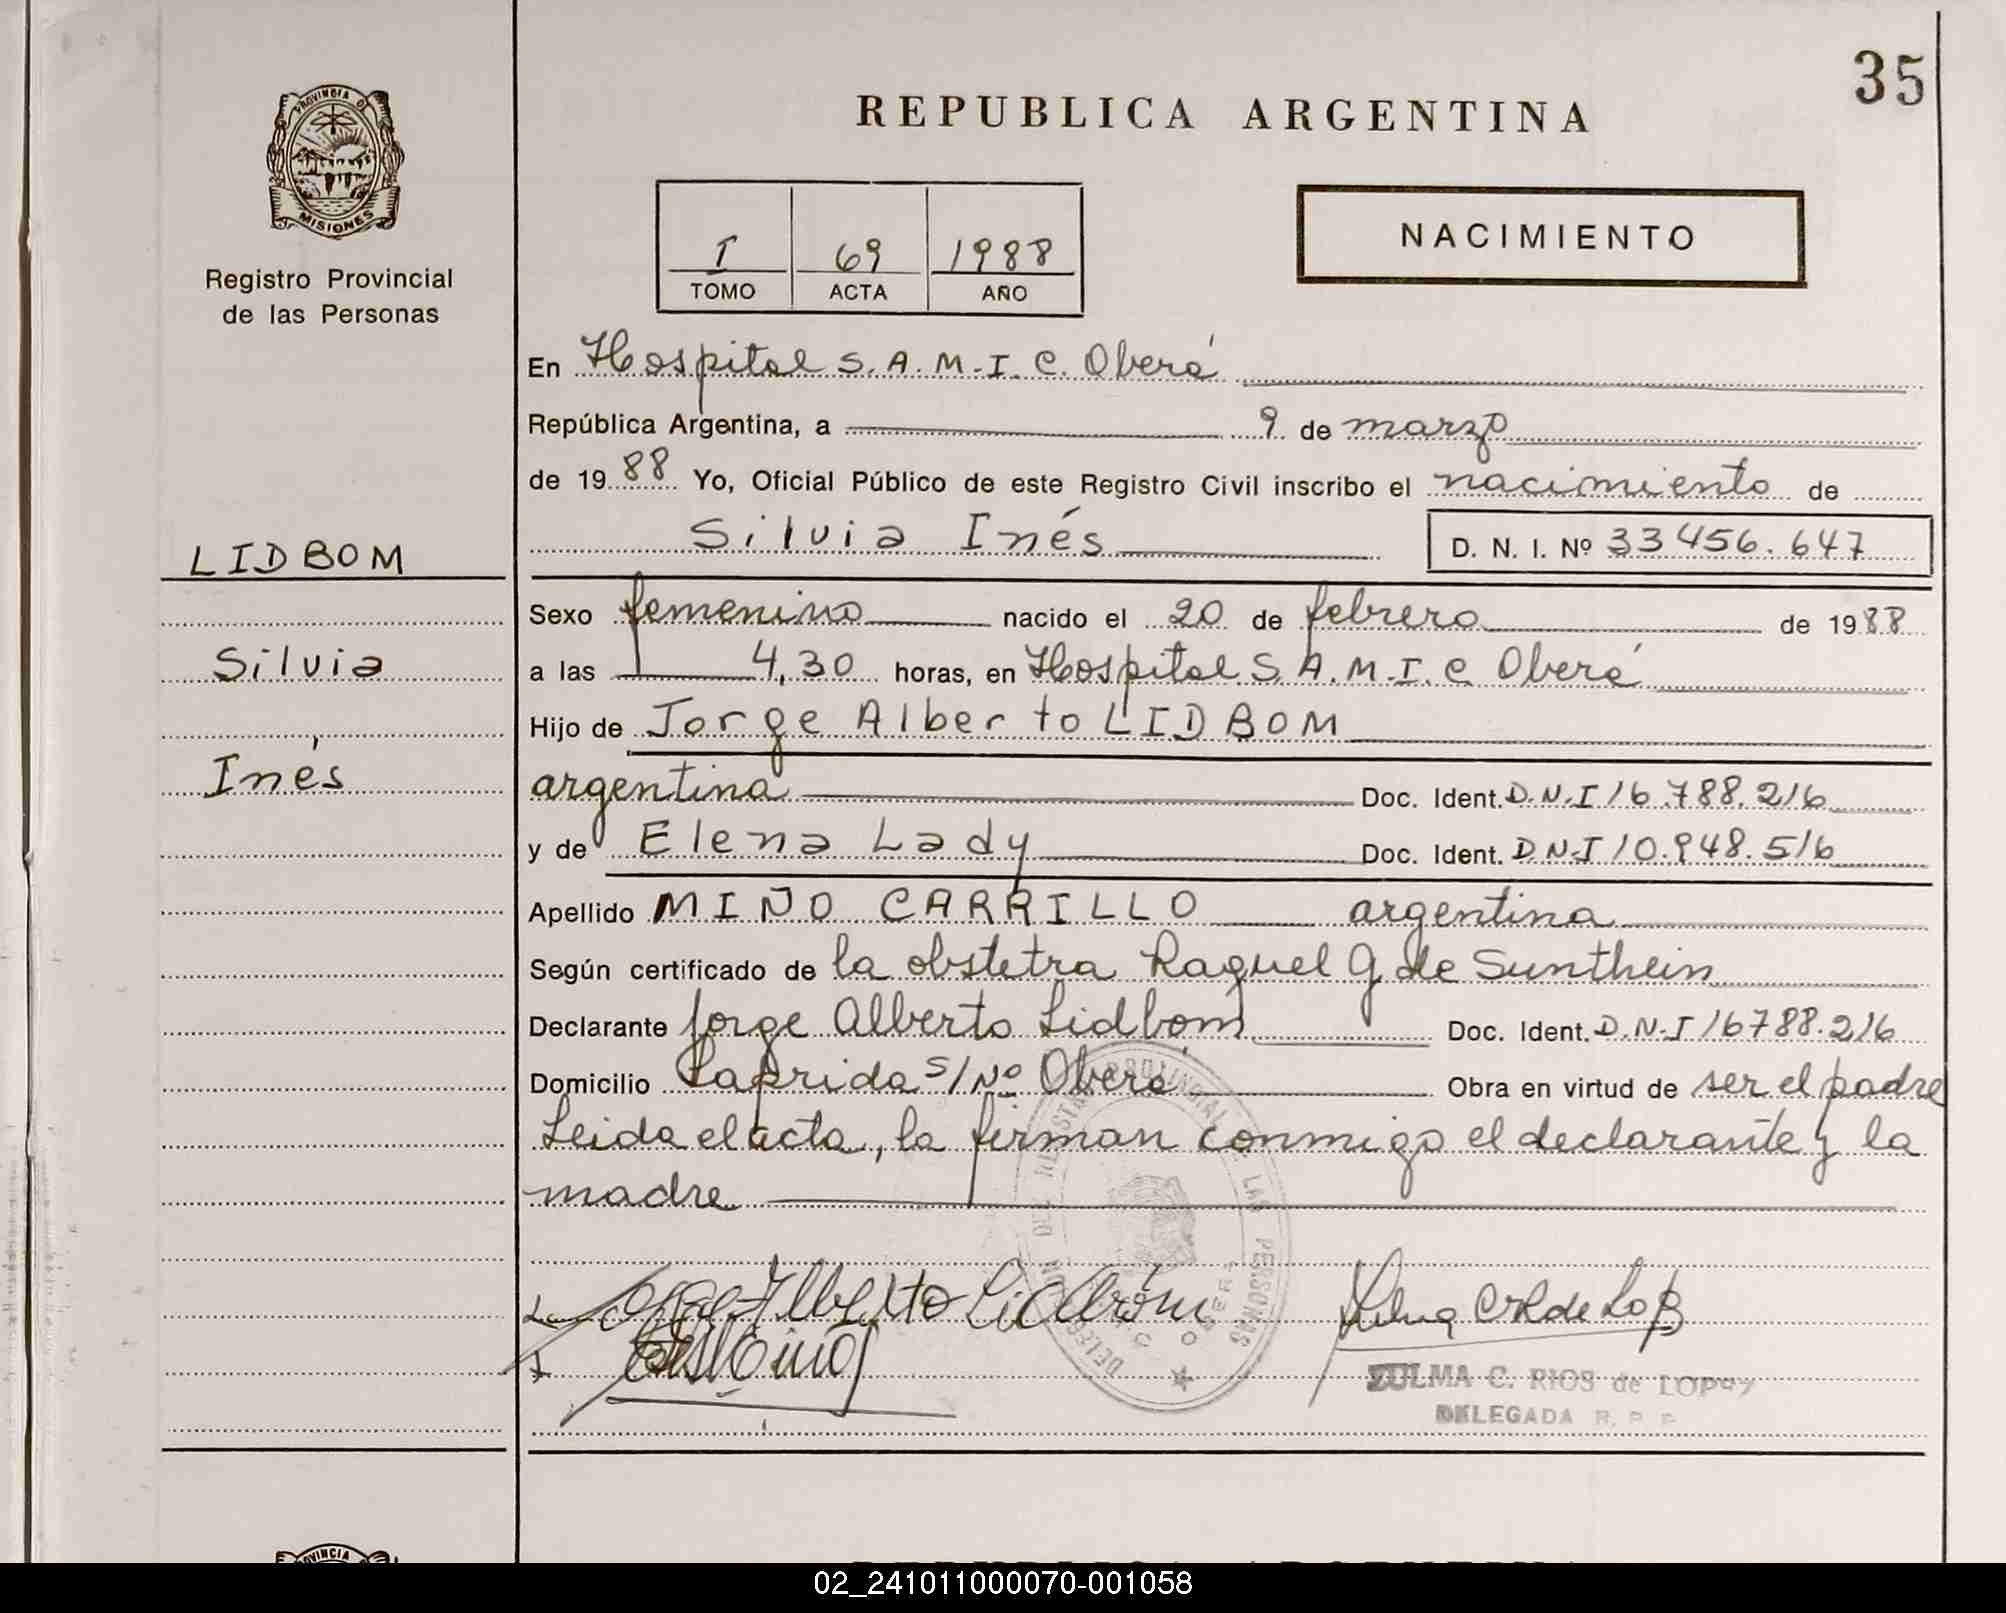 35
REPUBLICA ARGENTINA
PROVINCIA DE
MISIONES
Registro Provincial
de las Personas
NACIMIENTO
I 69 1988
TOMO ACTA AÑO
En Hospital S.A.M.I.C. Oberá
República Argentina, a 9 de marzo
de 1988 Yo, Oficial Público de este Registro Civil inscribo el nacimiento de
Silvia Inés D. N. I. Nº 33456.647
LIDBOM
Silvia
Inés
Sexo femenino nacido el 20 de febrero de 1988
a las 4,30 horas, en Hospital S.A.M.I.C Oberá
Hijo de Jorge Alberto LIDBOM
argentina Doc. Ident. D.N.I 16.788.216
y de Elena Lady Doc. Ident. D.N.I 10.948.516
Apellido MIÑO CARRILLO argentina
Según certificado de la obstetra Raquel G de Sunthein
Declarante Jorge Alberto Lidbom Doc. Ident. D.N.I 16788.216
Domicilio Laprida s/Nº Oberá Obra en virtud de ser el padre
Leida el acta, la firman conmigo el declarante y la
madre
DELEGACION DEL REGISTRO PROVINCIAL DE LAS PERSONAS
OBERA
Jorge Alberto Lidbóm
ZULMA C. RIOS de LOPEZ
DELEGADA R. P. P.
PROVINCIA
REPUBLICA ARGENTINA
02_241011000070-001058